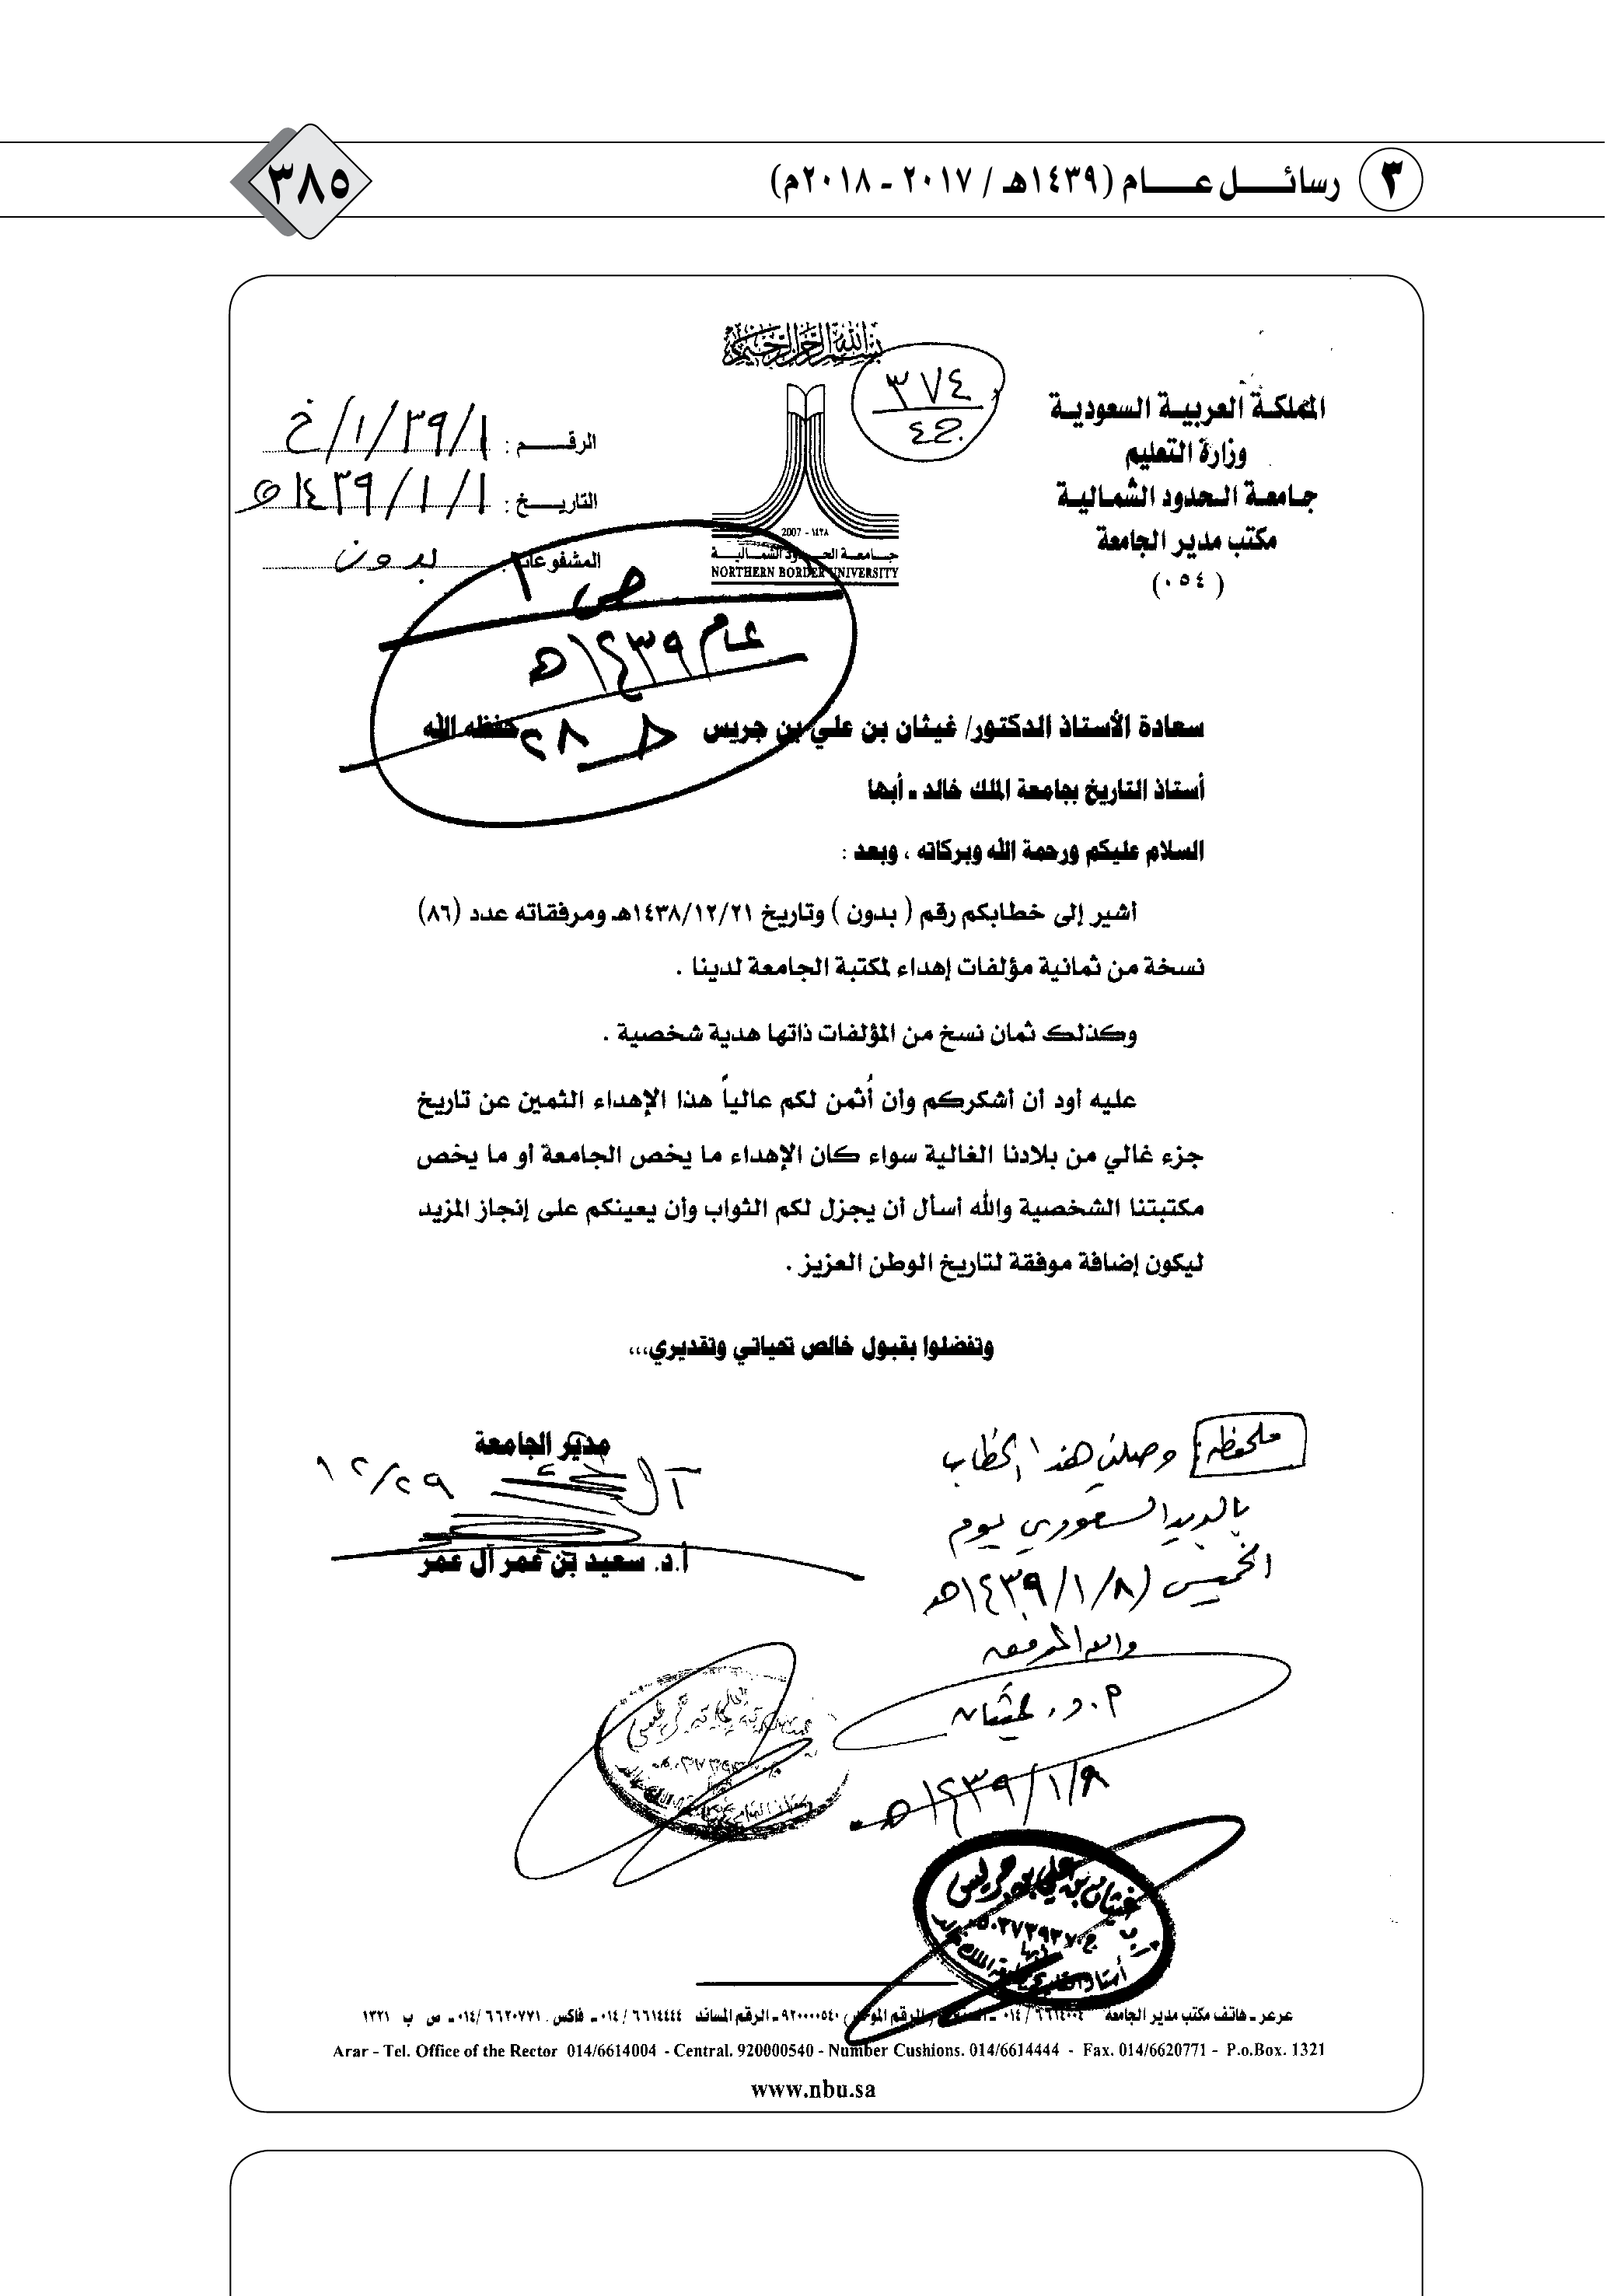 ٣ رسائل عام (١٤٣٩هـ / ٢٠١٧ - ٢٠١٨م)
٣٨٥
بسم الله الرحمن الرحيم
٣٧٤
المملكة العربية السعودية
وزارة التعليم
جامعة الحدود الشمالية
مكتب مدير الجامعة
(٠٥٤)
٢٠٠٧ - ١٤٢٨
جامعة الحدود الشمالية
NORTHERN BORDER UNIVERSITY
الرقم : ١/٣٩/١/خ
التاريخ : ١/١/١٤٣٩هـ
المشفوعات : بدون
ص ١
عام ١٤٣٩هـ
سعادة الأستاذ الدكتور/ غيثان بن علي بن جريس حفظه الله
أستاذ التاريخ بجامعة الملك خالد - أبها
السلام عليكم ورحمة الله وبركاته ، وبعد :
أشير إلى خطابكم رقم ( بدون ) وتاريخ ١٤٣٨/١٢/٢١هـ ومرفقاته عدد (٨٦)
نسخة من ثمانية مؤلفات إهداء لمكتبة الجامعة لدينا .
وكذلك ثمان نسخ من المؤلفات ذاتها هدية شخصية .
عليه أود أن أشكركم وأن أُثمن لكم عالياً هذا الإهداء الثمين عن تاريخ
جزء غالي من بلادنا الغالية سواء كان الإهداء ما يخص الجامعة أو ما يخص
مكتبتنا الشخصية والله أسأل أن يجزل لكم الثواب وأن يعينكم على إنجاز المزيد
ليكون إضافة موفقة لتاريخ الوطن العزيز .
وتفضلوا بقبول خالص تحياتي وتقديري،،،
مدير الجامعة
١٢/٢٩
أ.د. سعيد بن عمر آل عمر
ملحوظة: وصلني هذا الخطاب
بالبريد السعودي يوم
الخميس (١٤٣٩/١/٨هـ
والله الموفق
أ.د. غيثان
١٤٣٩/١/٨هـ
غيثان بن علي بن جريس
عرعر - هاتف مكتب مدير الجامعة ٠١٤/٦٦١٤٠٠٤ - الرقم الموحد ٩٢٠٠٠٠٥٤٠ - الرقم المساند ٠١٤/٦٦١٤٤٤٤ - فاكس . ٠١٤/٦٦٢٠٧٧١ - ص ب ١٣٢١
Arar - Tel. Office of the Rector 014/6614004 - Central. 920000540 - Number Cushions. 014/6614444 - Fax. 014/6620771 - P.o.Box. 1321
www.nbu.sa